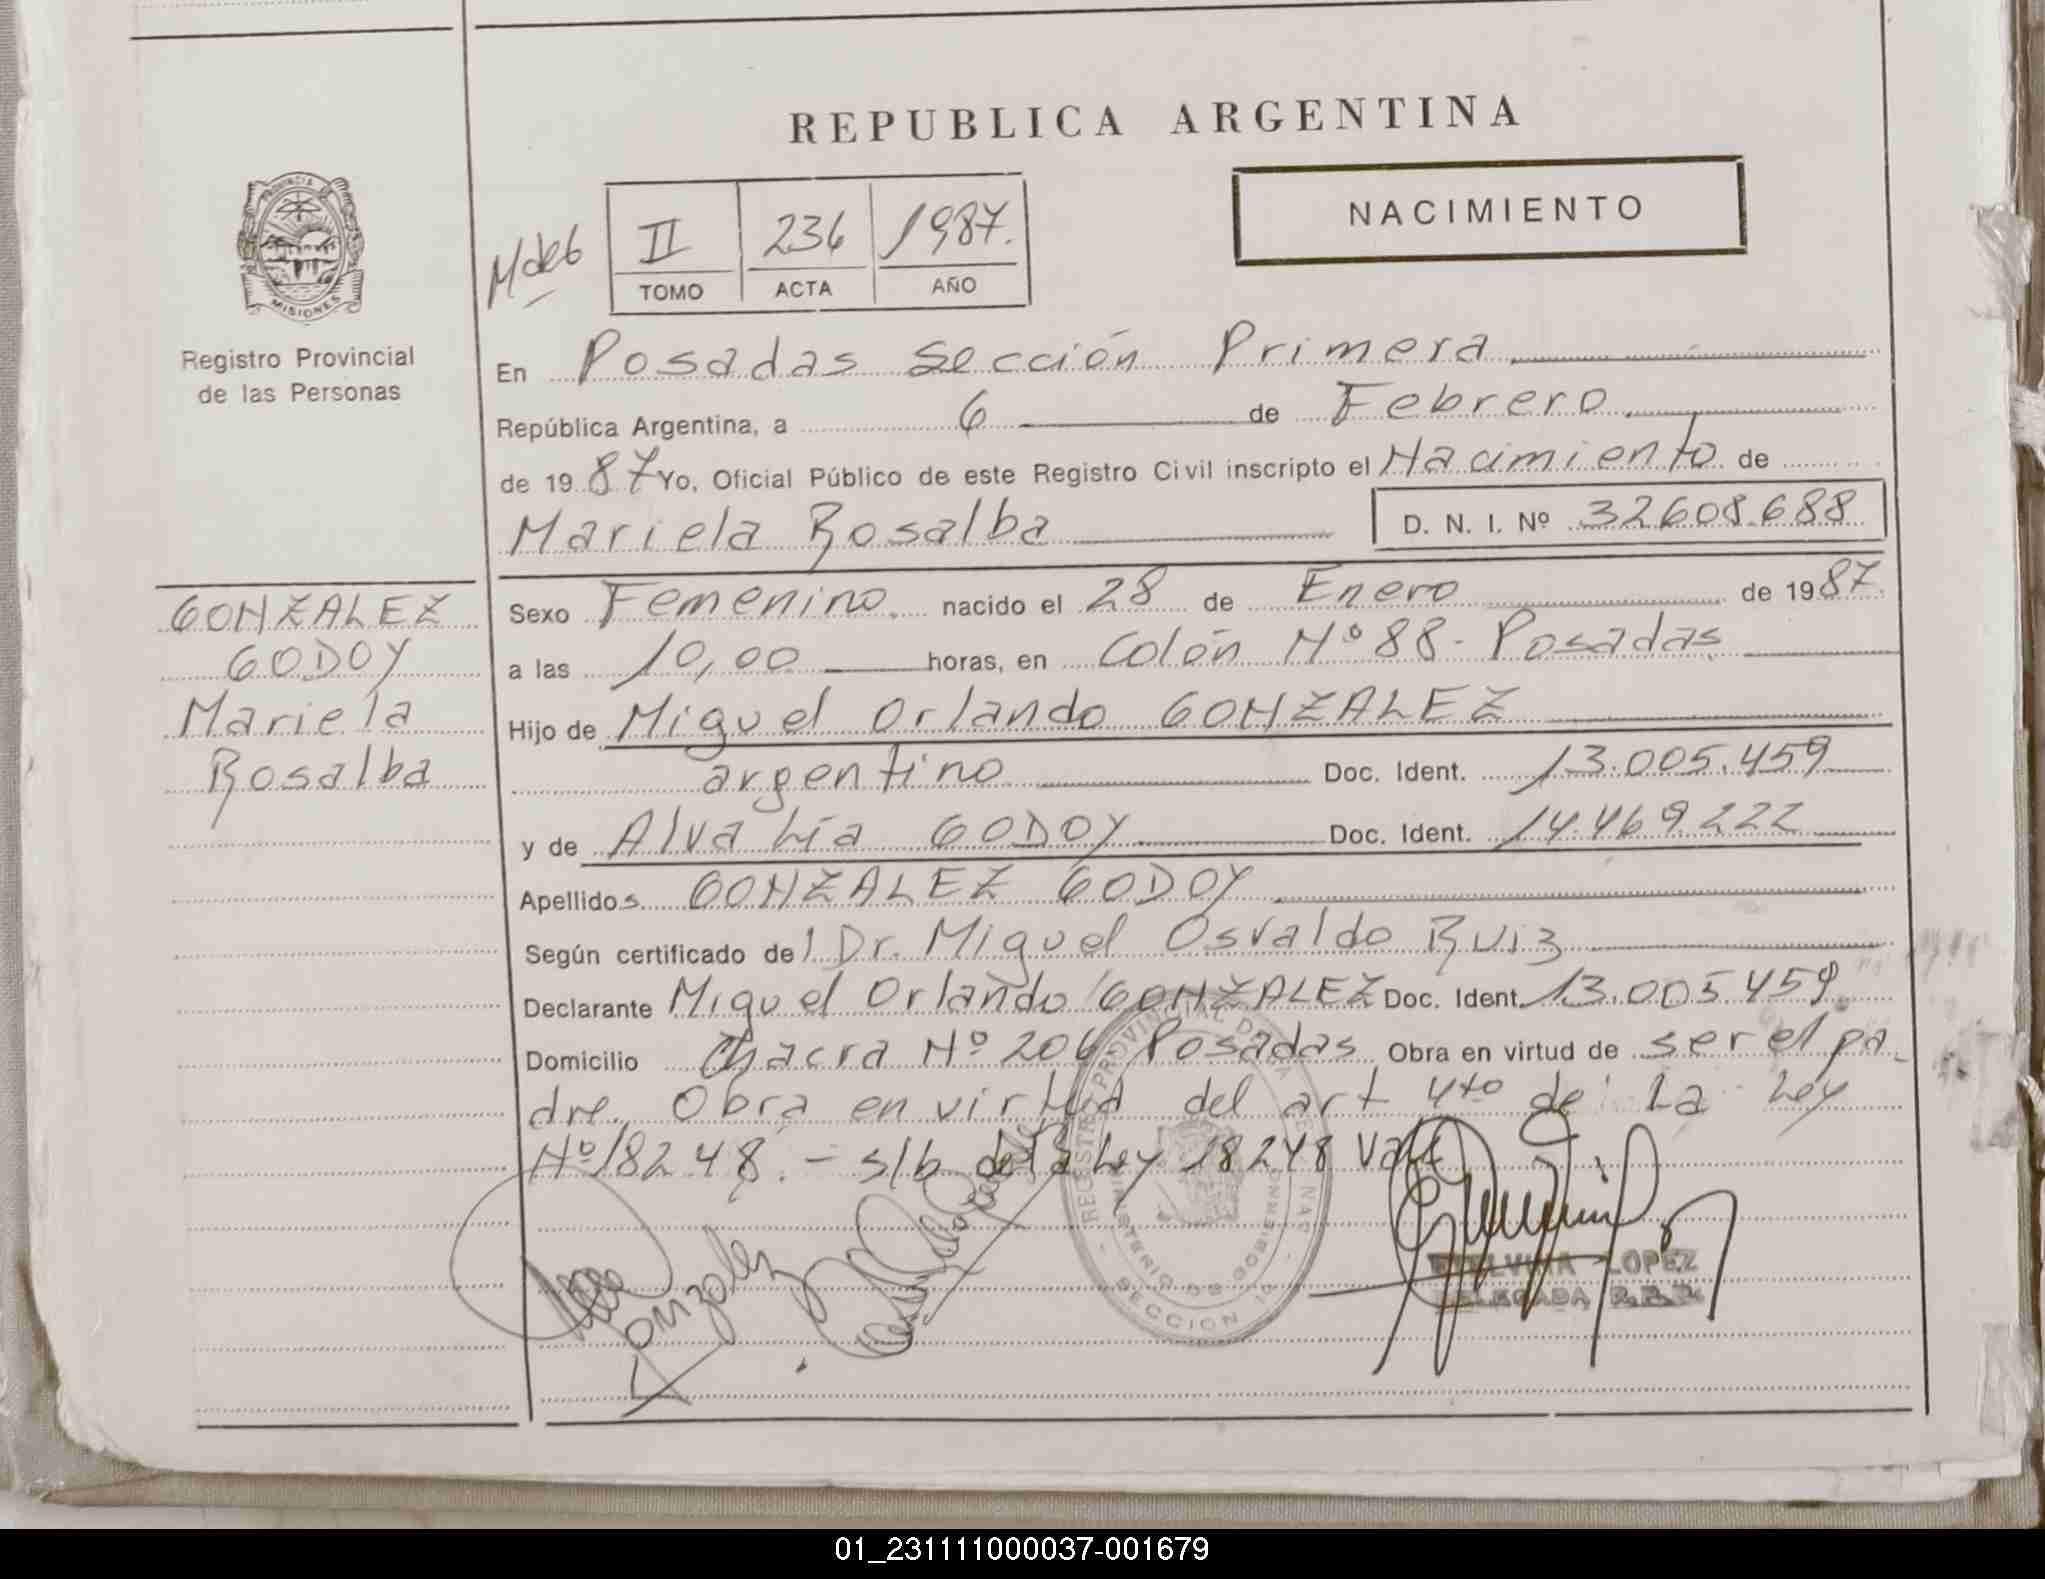 REPUBLICA ARGENTINA
NACIMIENTO
PROVINCIA DE
MISIONES
Registro Provincial
de las Personas
II 236 1987.
TOMO ACTA AÑO
En Posadas Sección Primera
República Argentina, a 6 de Febrero
de 1987 Yo, Oficial Público de este Registro Civil inscripto el Nacimiento de
Mariela Rosalba D. N. I. Nº 32608.688
GONZALEZ
GODOY
Mariela
Rosalba
Sexo Femenino. nacido el 28 de Enero de 1987.
a las 10,00 horas, en Colón Nº 88 - Posadas
Hijo de Miguel Orlando GONZALEZ
argentino Doc. Ident. 13.005.459
y de Alva Lía GODOY Doc. Ident. 14.469222
Apellidos GONZALEZ GODOY
Según certificado del Dr. Miguel Osvaldo Ruiz
Declarante Miguel Orlando GONZALEZ Doc. Ident. 13.005459.
Domicilio Chacra Nº 206 Posadas Obra en virtud de ser el pa-
dre. Obra en virtud del art 4to de La Ley
Nº 18248. - s/b de la Ley 18248 Vale
Gonzalez
REGISTRO PROVINCIAL DE LAS PERSONAS
MINISTERIO DE GOBIERNO
SECCION 1a
LOPEZ
DELEGADA R.P.P.
01_231111000037-001679